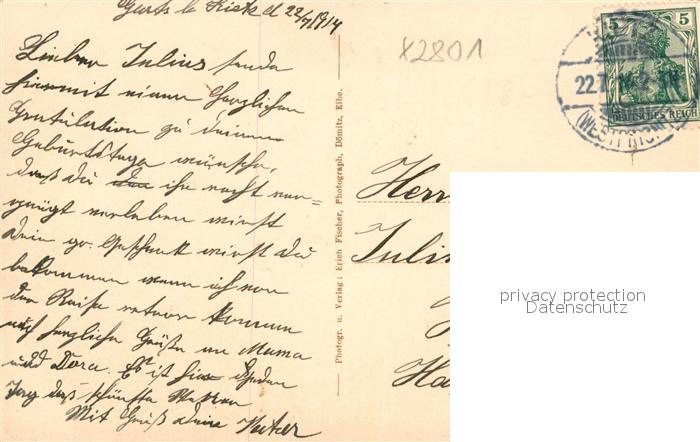 d 22/7 1914
X2801
5 5
22.7.14
DEUTSCHES REICH
(WESTPRIGN.)
Lieber Julius sende
hiermit einen herzlichen
Gratulation zu deinem
Geburtstage wünsche,
daß du ihn recht ver=
gnügt verleben wirst
dein gr. Geschenk wirst du
bekommen wenn ich von
der Reise retour komme
auch herzliche Grüße an Mama
und Dora. Es ist hier jeden
Tag das schönste Wetter
Mit Gruß dein Vater
Photogr. u. Verlag: Erich Fischer, Photograph, Dömitz, Elbe.
Herr
Juli
Ha
privacy protection
Datenschutz